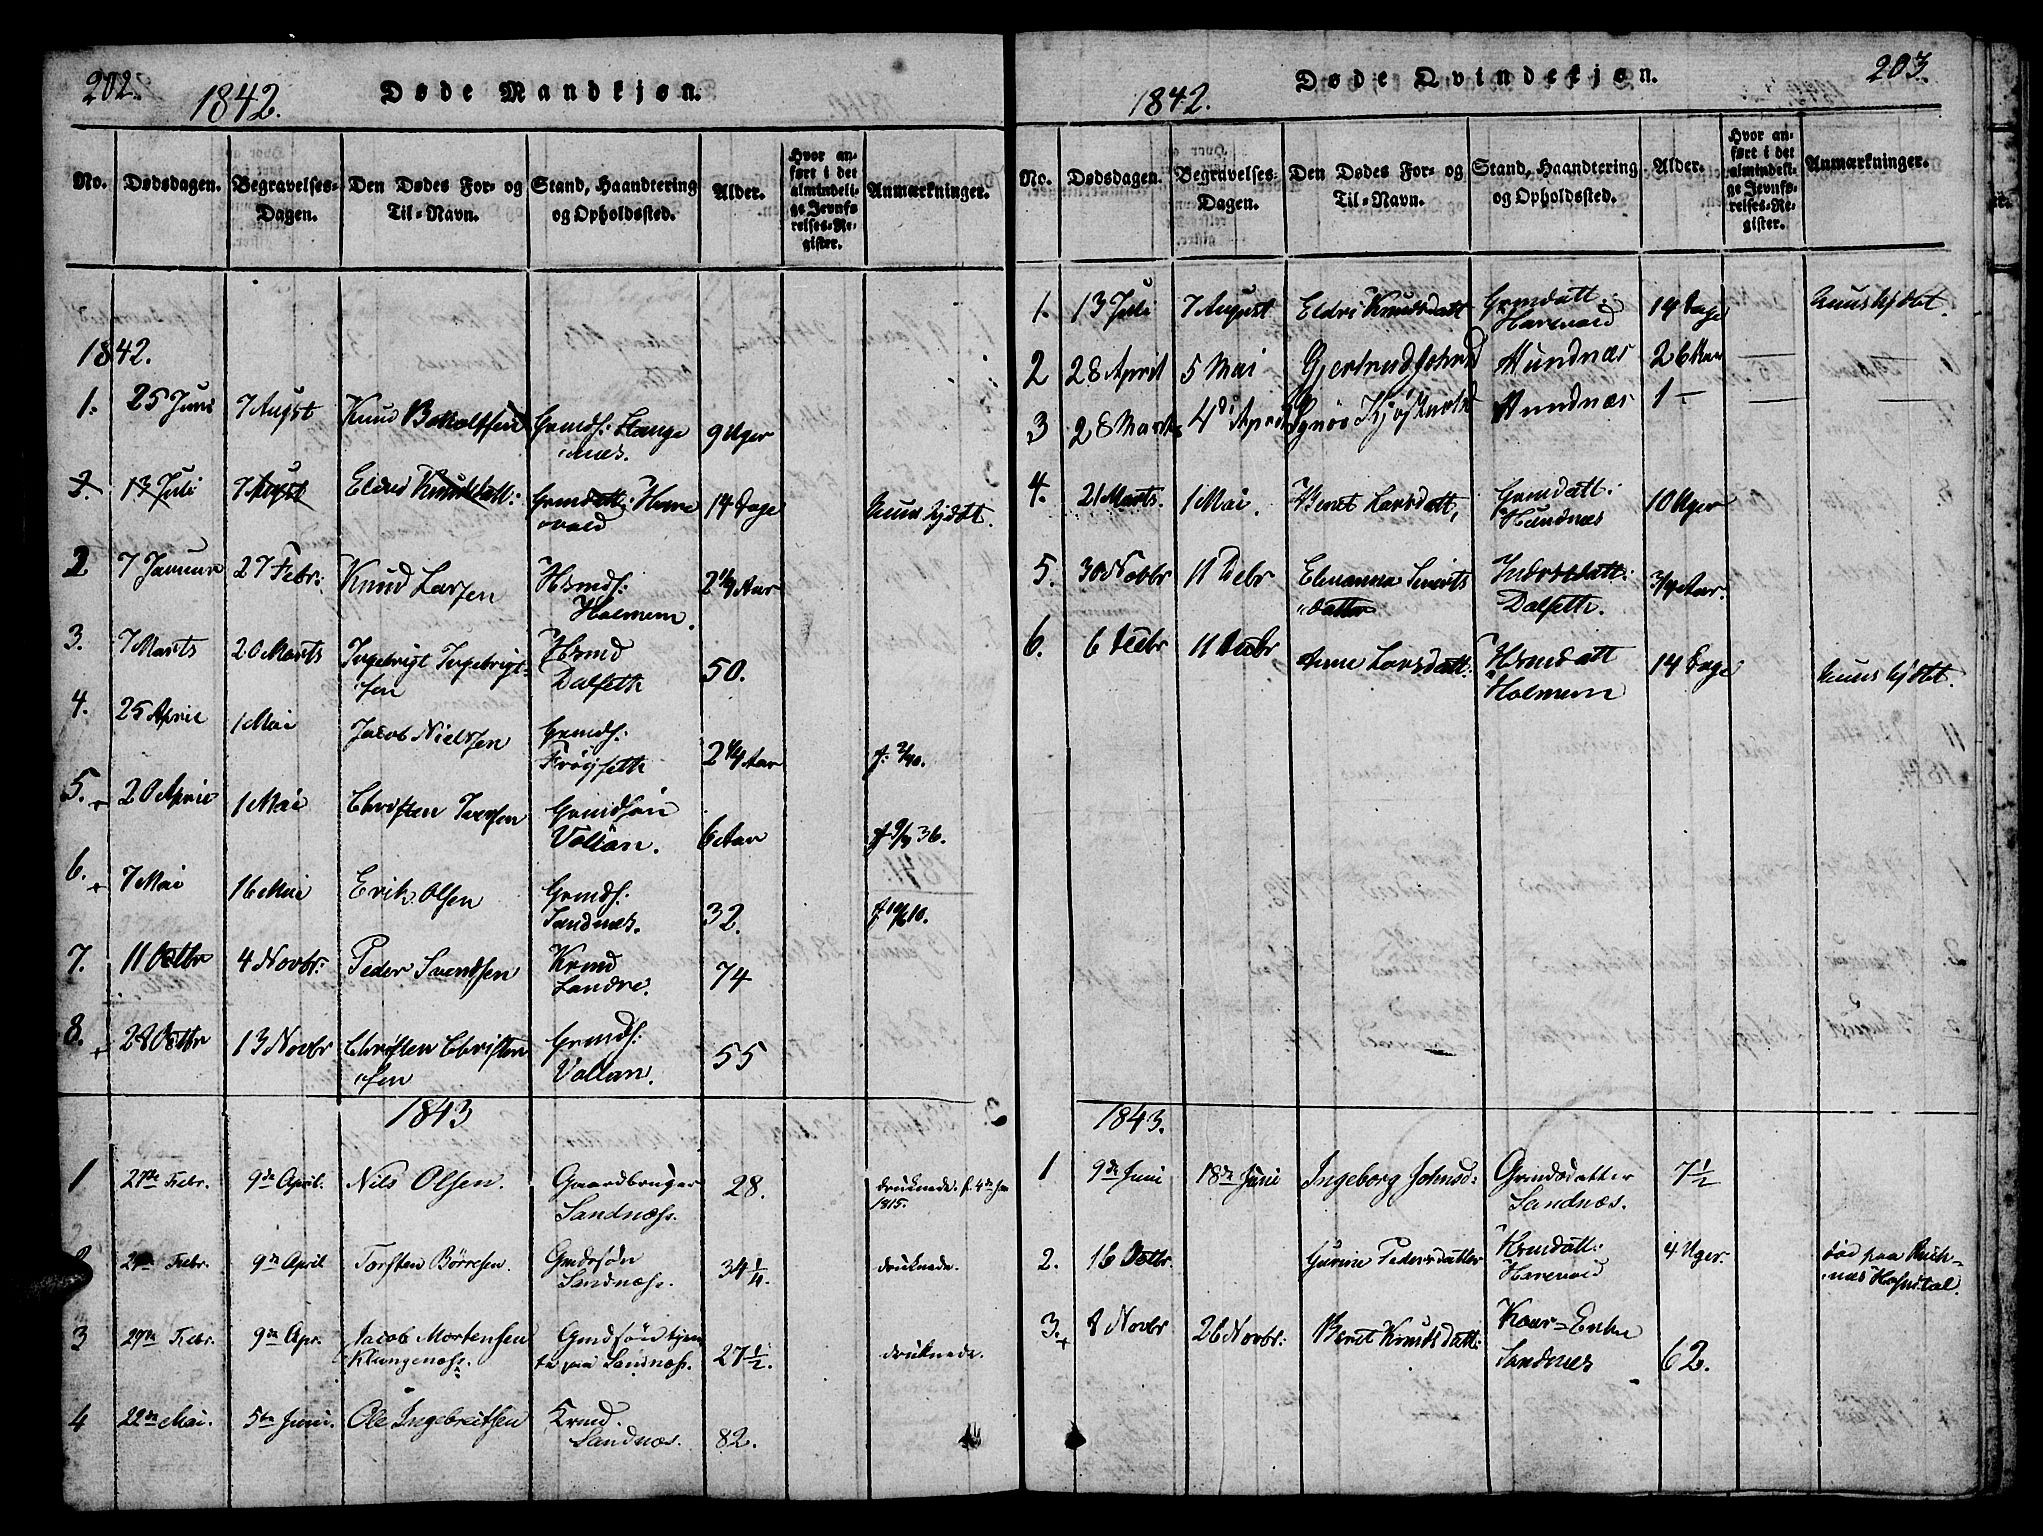 202.
1842.
Døde Mandkjøn.
No. Dødsdagen. Begravelses-Dagen. Den Dødes For- og Til-Navn. Stand, Haandtering og Opholdssted. Alder. Hvor anført i det almindelige Jevnførelses-Register. Anmærkninger.
1842.
1. 25 Juni 7 August Knud Grmds: 9 Uger
2. 13 Juli 7 August Eldri Knudsdatt: Grmdatt: Harevold 14 Dage
2 7 Januar 27 Febr: Knud Larsen Hsmds: Holmem. 2 1/4 Aar
3. 7 Marts 20 Marts Ingebrigt Ingebrigtsen Hsmd Dalseth 50.
4. 25 April 1 Mai Jacob Nielssen Grmds: Frøyseth 2 1/4 Aar
5. + 20 April 1 Mai Christen Iversen Grmdsøn Vollan. 6 Aar
6. + 7 Mai 16 Mai Erik Olsen Grmds: Sandnæs. 32.
7. 11 Octbr 4 Novbr: Peder Svendsen Krmd Landre. 74
8. + 28 Octbr 13 Novbr Christen Christensen Grmds: Vollan. 55
1843
1 27de Febr. 9de April. Nils Olsen. Gaardbruger Sandnæss. 28. druknede. f. 1815.
2 27de Febr. 9de April Torsten Børresen. Gmdsøn Sandnæss. 34 1/4. druknede.
3 27de Febr. 9de Apr. Jacob Mortensen Klungenæss. Gmdsøn tjente paa Sandnæss. 27 1/2. druknede.
4 22de Mai. 5te Juni. Ole Ingebreitsen Krmd. Sandnæs. 82.
203.
1842.
Døde Qvindekjøn.
No. Dødsdagen. Begravelses-Dagen. Den Dødes For- og Til-Navn. Stand, Haandtering og Opholdssted. Alder. Hvor anført i det almindelige Jevnførelses-Register. Anmærkninger.
1. 13 Juli 7 August Eldri Knudsdatt Grmdatt: Harevold 14 Dage
2 28 April 5 Mai Gjertrud Johnsd Hundnæs 26
3 28 Marts 4de April Hundnæs 1 —
4. 21 Marts. 1 Mai. Beret Larsdatt, Grmdatt: Hundnæs 10 Uger
5. 30 Novbr 11 Debr datter Dalseth. 3/4 Aar.
6. 6 Decbr 11 Decbr Anne Larsdatt: Hsmdatt Holmem 14 Dage
1843.
1 9de Juni 18de Juni Ingeborg Johnsd: Grmdsdatter Sandnæs. 7 1/2
2. 16 Octbr. Gurine Pedersdatter Harevold 4 Uger. død paa Reknæs Hospital.
3. + 8 Novbr 26 Novbr: Beret Knudsdatt: Kaar-Enke Sandnæs 62.